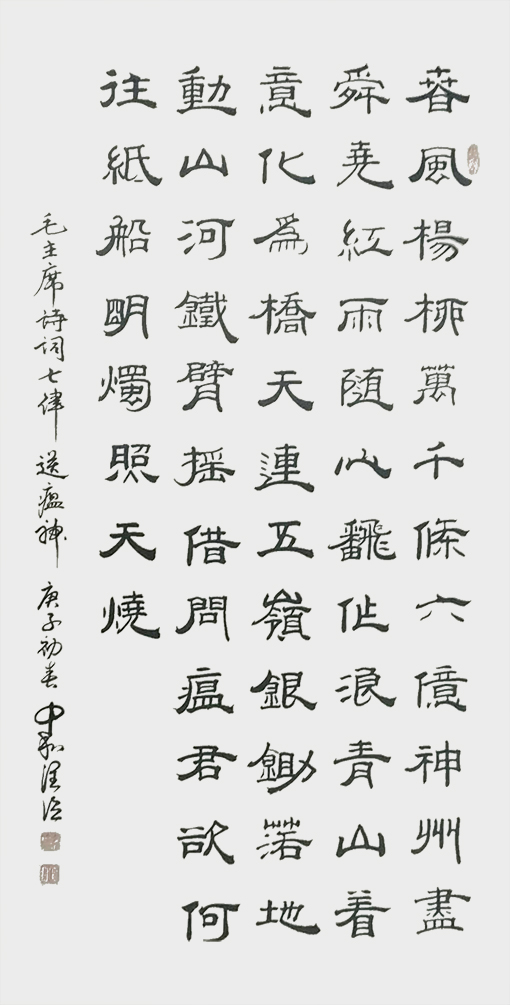 春風楊柳萬千條六億神州盡
舜堯紅雨随心飜作浪青山着
意化為橋天連五嶺銀鋤落地
動山河鐵臂摇借問瘟君欲何
往紙船明燭照天燒
毛主席诗词七律送瘟神庚子初春